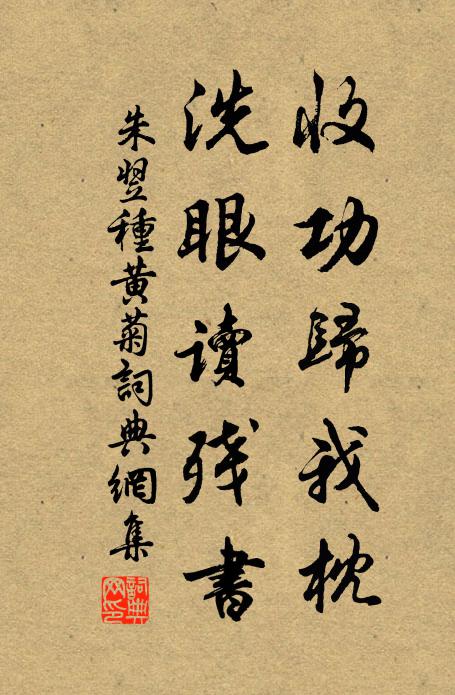 收功歸我枕
洗眼讀残書
朱翌種黄菊詞典網集
詞典網印